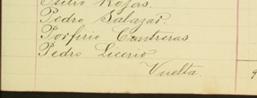 Julio Rojas.
Pedro Salazar
Porfirio Contreras
Pedro Licerio
Vuelta